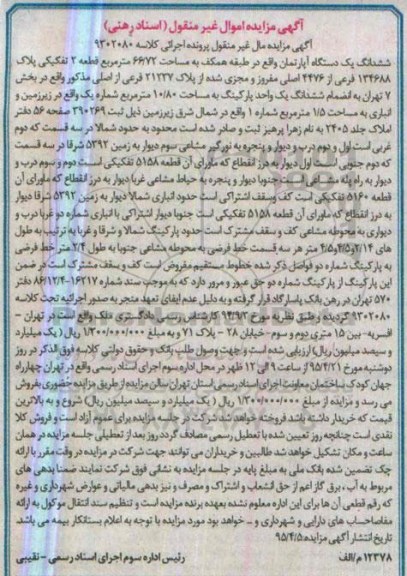 آگهی مزایده اموال غیر منقول (اسناد رهنی)
آگهی مزایده مال غیر منقول پرونده اجرائی کلاسه ۹۳۰۲۰۸۰
ششدانگ یک دستگاه آپارتمان واقع در طبقه همکف به مساحت ۶۶/۷۲ مترمربع قطعه ۲ تفکیکی پلاک
۱۳۴۶۸۸ فرعی از ۴۴۷۶ اصلی مفروز و مجزی شده از پلاک ۲۱۲۳۷ فرعی از اصلی مذکور واقع در بخش
۷ تهران به انضمام ششدانگ یک واحد پارکینگ به مساحت ۱۰/۸۰ مترمربع شماره یک واقع در زیرزمین و
انباری به مساحت ۱/۵ مترمربع شماره ۱ واقع در شمال شرق زیرزمین ذیل ثبت ۳۹۰۲۶۹ صفحه ۵۶ دفتر
املاک جلد ۲۴۰۵ به نام زهرا پرهیز ثبت و صادر شده است محدود به حدود شمالا در سه قسمت که دوم
غربی است اول و دوم درب و دیوار و پنجره به نورگیر مشاعی سوم دیوار به زمین ۵۳۹۲ شرقا در سه قسمت
که دوم جنوبی است اول دیوار به درز انقطاع که ماورای آن قطعه ۵۱۵۸ تفکیکی است دوم و سوم درب و
دیوار به راه پله مشاعی جنوبا دیوار و پنجره به حیاط مشاعی غربا دیوار به درز انقطاع که ماورای آن
قطعه ۵۱۶۰ تفکیکی است کف وسقف اشتراکی است حدود انباری شمالا دیوار به زمین ۵۳۹۲ شرقا دیوار
به درز انقطاع که ماورای آن قطعه ۵۱۵۸ تفکیکی است جنوبا دیوار اشتراکی با انباری شماره دو غربا درب و
دیواری به محوطه مشاعی کف و سقف مشترک است حدود پارکینگ شمالا و شرقا و غربا به ترتیب به طول
های ۲/۱۴و۴/۵و۴/۵ متر هر سه قسمت خط فرضی به محوطه مشاعی جنوبا به طول ۲/۴ متر خط فرضی
به پارکینگ شماره دو فواصل ذکر شده خطوط مستقیم مفروض است کف و سقف مشترک است در ضمن
این پارکینگ از پارکینگ شماره دو حق عبور و مرور دارد که به موجب سند شماره ۱۶۲۱۷-۸۶/۱۲/۴ دفتر
۵۷۰ تهران در رهن بانک پاسارگاد قرار گرفته و به دلیل عدم ایفای تعهد منجر به صدور اجرائیه تحت کلاسه
۹۳۰۲۰۸۰ گردیده و طبق نظریه مورخ ۹۴/۹/۳ کارشناس رسمی دادگستری ملک واقع است در تهران -
افسریه- بین ۱۵ متری دوم و سوم- خیابان ۲۸ - پلاک ۷۱ و به مبلغ ۱/۳۰۰/۰۰۰/۰۰۰ ریال (یک میلیارد
و سیصد میلیون ریال) ارزیابی شده است و جهت وصول طلب بانک و حقوق دولتی کلاسه فوق الذکر در روز
دوشنبه مورخ ۹۵/۴/۲۱ از ساعت ۹ الی ۱۲ ظهر در محل اداره سوم اجرای اسناد رسمی واقع در تهران چهارراه
جهان کودک ساختمان معاونت اجرای اسناد رسمی استان تهران سالن مزایده از طریق مزایده حضوری بفروش
می رسد و مزایده از مبلغ ۱/۳۰۰/۰۰۰/۰۰۰ ریال (یک میلیارد و سیصد میلیون ریال) شروع و به بالاترین
قیمت که خریدار داشته باشد فروخته خواهد شد شرکت در جلسه مزایده برای عموم آزاد است و فروش کلا
نقدی است چنانچه روز تعیین شده با تعطیل رسمی مصادف گردد روز بعد از تعطیلی جلسه مزایده در همان
ساعت و مکان تشکیل خواهد شد طالبین و خریداران می توانند جهت شرکت در مزایده در وقت مقرر با ارائه
چک تضمین شده بانک ملی به مبلغ پایه در جلسه مزایده به نشانی فوق شرکت نمایند ضمنا بدهی های
مربوط به آب، برق گاز اعم از حق انشعاب و اشتراک و مصرف و نیز بدهی مالیاتی و عوارض شهرداری و غیره
که رقم قطعی آن ها برای این اداره معلوم نشده بعهده برنده مزایده است و تنظیم سند انتقال موکول به ارائه
مفاصاحساب های دارایی و شهرداری و .. خواهد بود مورد مزایده با توجه به اعلام بستانکار بیمه می باشد.
تاریخ انتشار آگهی مزایده:۹۵/۴/۵
۱۲۳۷۸ م/الف رئیس اداره سوم اجرای اسناد رسمی - نقیبی